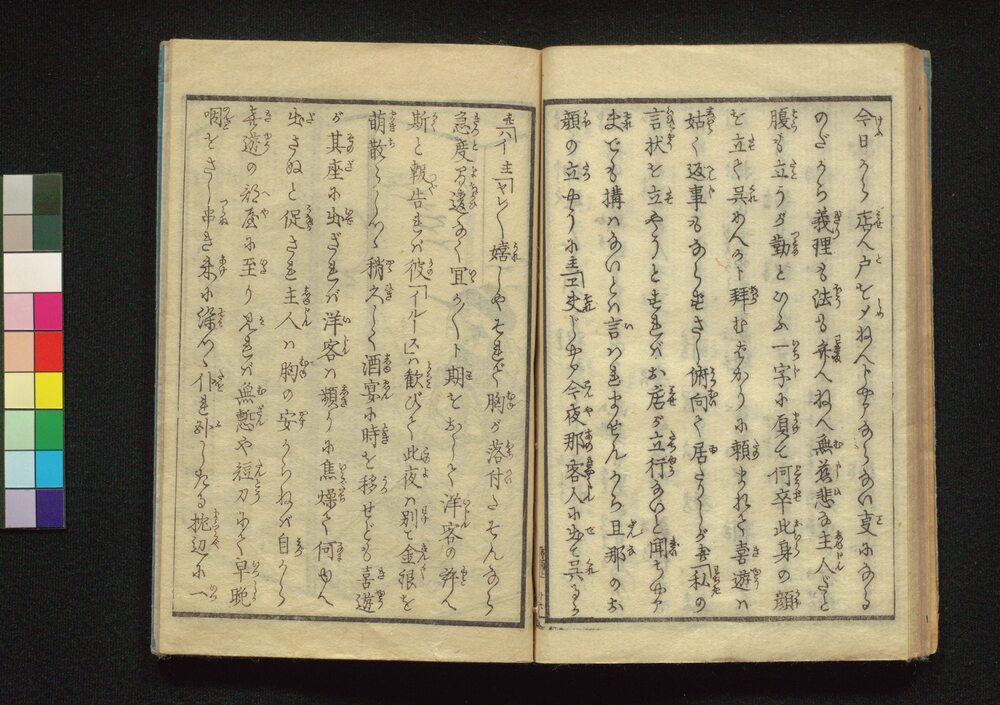 今日から店へ戸を〆ねへじやアならない事になる
のだから義理も法も弁へねへ無慈悲な主人だと
腹も立うが勤といふ一字に負て何卒此身の顔
を立て呉めんかト拝むばかりに頼まれて喜遊は
姑く返事もなしさし俯向て居たりしが 喜「私の
言状を立やうとすればお店が立行ないと聞ちやア
まても搆はないとは言はれませんから旦那のお
顔の立やうに 主「エまじやア今夜那客人に出て呉るか
喜「ハイ 主「ヤレ〳〵嬉しやそれで胸が落付たそんなら
急度間違なく宜かへト期をおして洋客の許へ
斯と報告れば彼「イルース」は歓びて此夜は別て金銀を
萌散らしつゝ稍久しく酒宴に時を移せども喜遊
が其座に出ざれば洋客は頻りに焦燥て何ゆへ
出さぬと促され主人は胸の安からねば自から
喜遊の部屋に至り見れば無慙や短刀にて早晩
咽をさし串き朱に染りて仆れ臥したる枕辺に一